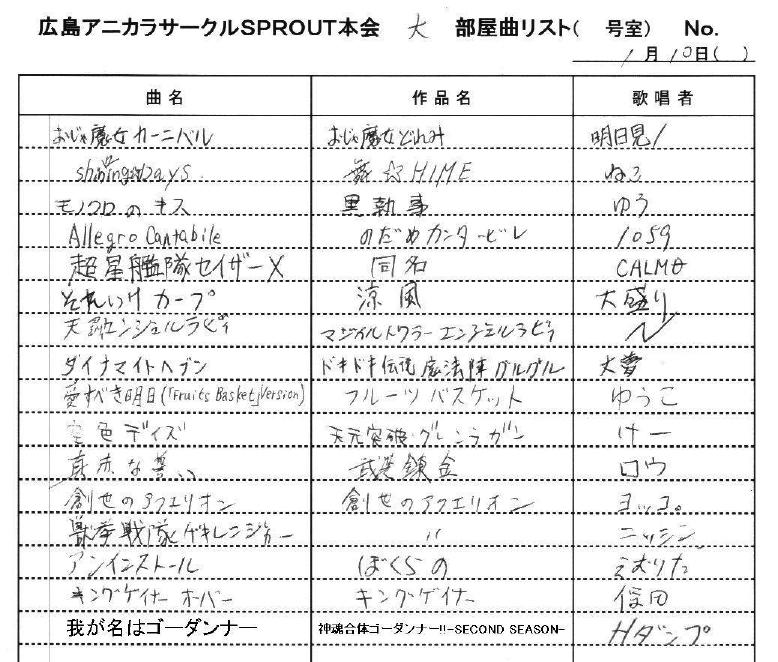 広島アニカラサークルSPROUT本会 大 部屋曲リスト( 号室) No.
1月10日( )
曲名 作品名 歌唱者
おジャ魔女カーニバル おジャ魔女どれみ 明日見/
shining☆Days 舞☆HIME ねこ
モノクロのキス 黒執事 ゆう
Allegro Cantabile のだめカンタービレ 1059
超星艦隊セイザーX 同名 CALMθ
それいけカープ 涼風 大盛り
マジイルトワラーエンジェルラビィ
ダイナマイトヘブン ドキドキ伝説 魔法陣グルグル
愛すべき明日(「Fruits Basket」Version) フルーツバスケット ゆうこ
空色デイズ 天元突破・グレンラガン けー
真赤な誓い 武装錬金 ロウ
創世のアクエリオン 創世のアクエリオン ヨッコ。
獣拳戦隊ゲキレンジャー 〃 ニッシン
アンインストール ぼくらの えむりた
キングゲイナーオーバー キングゲイナー 信田
我が名はゴーダンナー 神魂合体ゴーダンナー!!-SECOND SEASON- Hダンプ